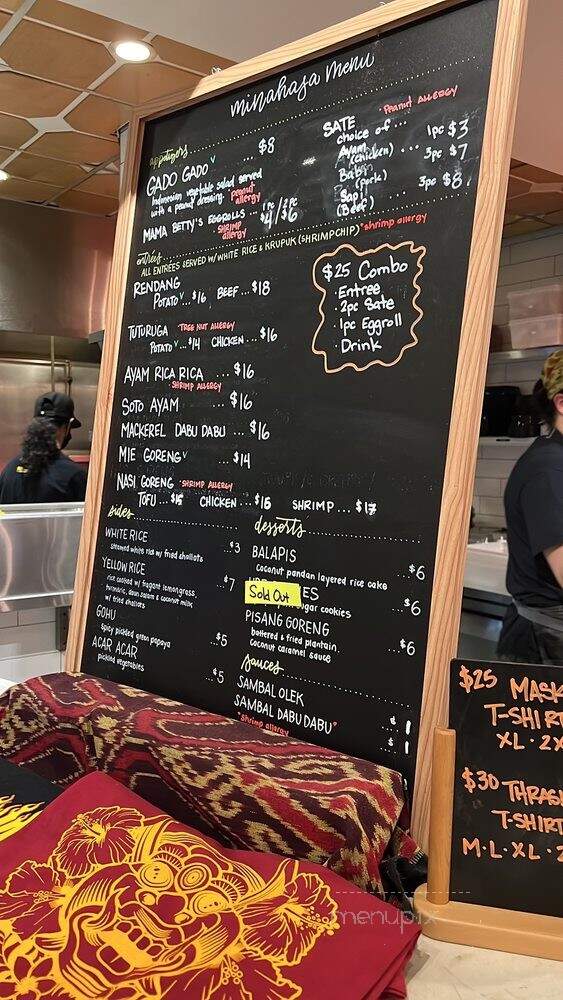 minahasa menu
appetizers
GADO GADO v ... $8
Indonesian vegetable salad served
with a peanut dressing. *peanut
allergy
MAMA BETTY'S EGGROLLS ... 1pc $4 / 2pc $6
SHRIMP
allergy
*Peanut ALLERGY
SATE
choice of ...
Ayam
(chicken) ... 1pc $3
Babi
(pork) ... 2pc $7
Sapi
(Beef) ... 3pc $8
*shrimp allergy
entrées
ALL ENTRÉES SERVED W/ WHITE RICE & KRUPUK (SHRIMP CHIP)
RENDANG
POTATO v .. $16 BEEF .. $18
TUTURUGA *TREE NUT ALLERGY
POTATO v ... $14 CHICKEN ... $16
AYAM RICA RICA ... $16
*SHRIMP ALLERGY
SOTO AYAM ... $16
MACKEREL DABU DABU ... $16
MIE GORENG v ... $14
NASI GORENG *SHRIMP ALLERGY
TOFU ... $15 CHICKEN ... $16 SHRIMP ... $17
$25 Combo
· Entree
· 2pc Sate
· 1pc Eggroll
· Drink
sides
WHITE RICE
steamed white rice w/ fried shallots ... $3
YELLOW RICE
rice cooked w/ fragrant lemongrass, ... $7
turmeric, daun salam & coconut milk,
w/ fried shallots
GOHU
spicy pickled green papaya ... $5
ACAR ACAR
pickled vegetables ... $5
desserts
BALAPIS
coconut pandan layered rice cake ... $6
Sold Out
ES
sugar cookies ... $6
PISANG GORENG
battered & fried plantain, ... $6
coconut caramel sauce
sauces
SAMBAL OLEK ... $1
SAMBAL DABU DABU* ... $1
*shrimp allergy
$25 MASK
T-SHIRT
XL · 2X
$30 THRASH
T-SHIRT
M·L·XL·2
menupix